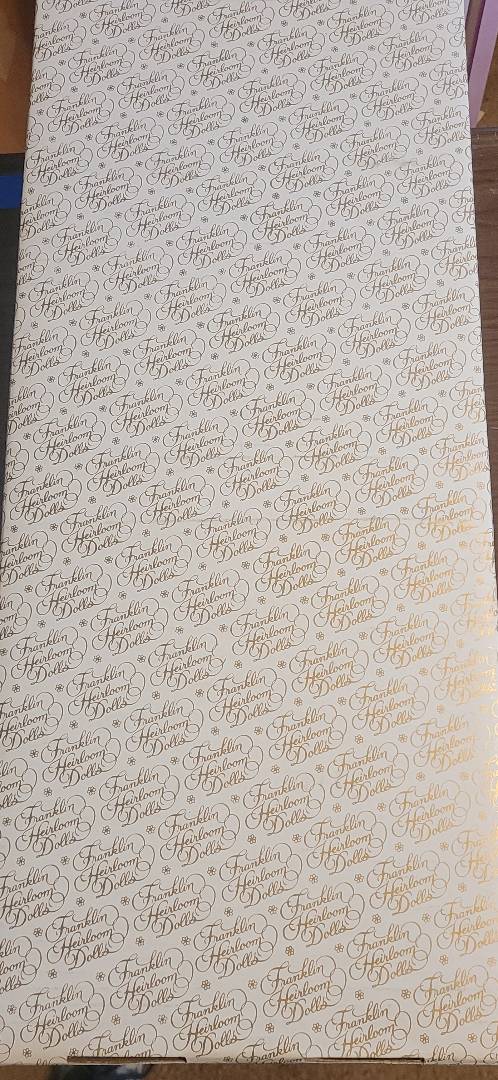 Franklin
Heirloom
Dolls